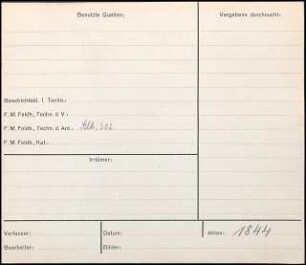 Benutzte Quellen:
Vergebens durchsucht:
Geschichtsbl. f. Techn.:
F. M. Feldh., Techn. d. V.:
F. M. Feldh., Techn. d. Ant.: Abb. 302
F. M. Feldh., Kal.:
Irrtümer:
Verfasser:
Datum:
Akten: 1844
Bearbeiter:
Bilder: